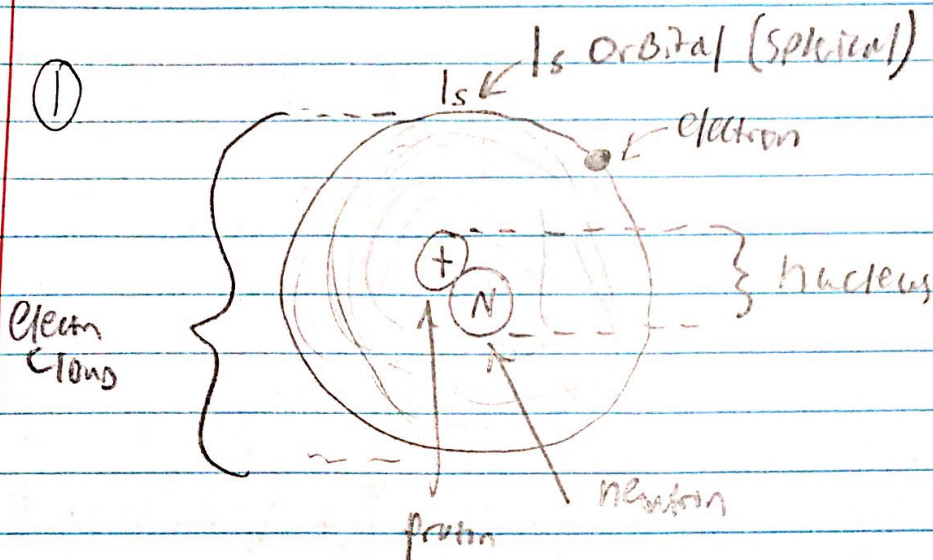 ①
1s Orbital (Spherical)
1s
electron
+
N
nucleus
Electn
Cloud
neutron
proton